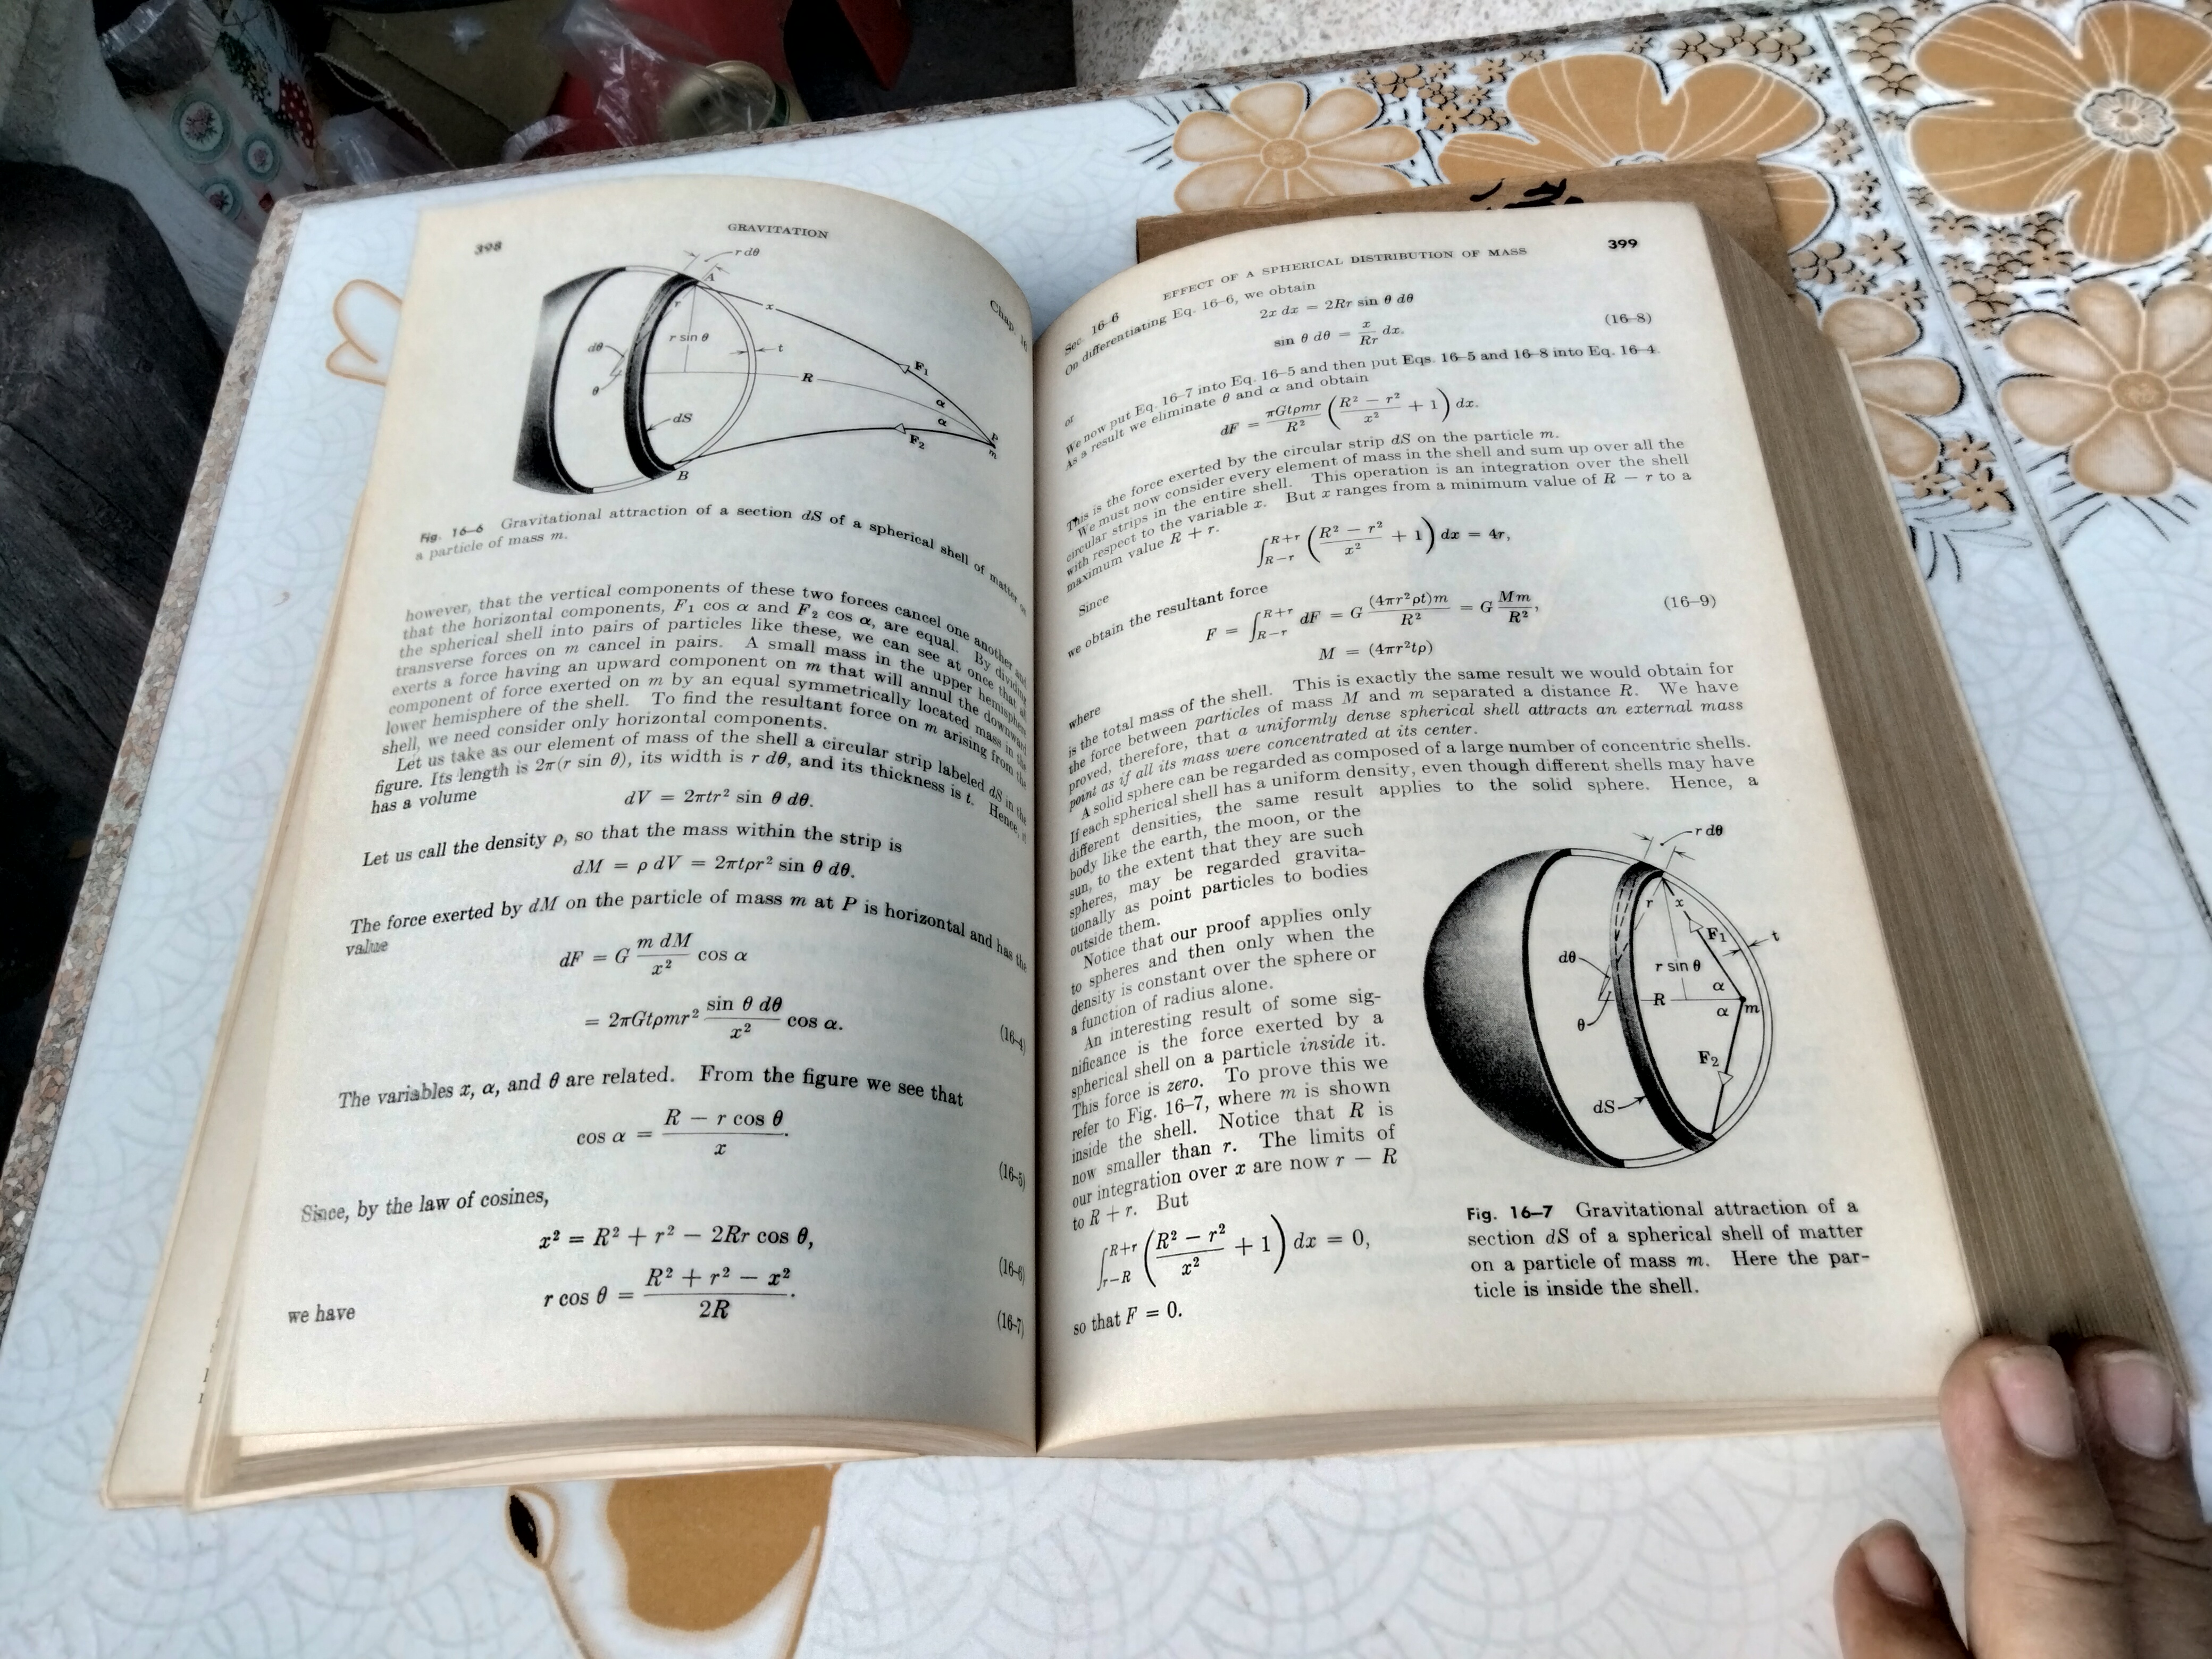 398
GRAVITATION
Chap. 16
r dθ
A
x
r
r sin θ
dθ
t
θ
R
F₁
α
α
dS
F₂
P
m
B
Fig. 16–6 Gravitational attraction of a section dS of a spherical shell of matter on
a particle of mass m.
however, that the vertical components of these two forces cancel one another and
that the horizontal components, F₁ cos α and F₂ cos α, are equal. By dividing
the spherical shell into pairs of particles like these, we can see at once that all
transverse forces on m cancel in pairs. A small mass in the upper hemisphere
exerts a force having an upward component on m that will annul the downward
component of force exerted on m by an equal symmetrically located mass in the
lower hemisphere of the shell. To find the resultant force on m arising from the
shell, we need consider only horizontal components.
Let us take as our element of mass of the shell a circular strip labeled dS in the
figure. Its length is 2π(r sin θ), its width is r dθ, and its thickness is t. Hence, it
has a volume
dV = 2πtr² sin θ dθ.
Let us call the density ρ, so that the mass within the strip is
dM = ρ dV = 2πtρr² sin θ dθ.
The force exerted by dM on the particle of mass m at P is horizontal and has the
value
dF = G (m dM)/x² cos α
= 2πGtρmr² (sin θ dθ)/x² cos α. (16–4)
The variables x, α, and θ are related. From the figure we see that
cos α = (R − r cos θ)/x. (16–5)
Since, by the law of cosines,
x² = R² + r² − 2Rr cos θ, (16–6)
we have
r cos θ = (R² + r² − x²)/2R. (16–7)
Sec. 16–6
EFFECT OF A SPHERICAL DISTRIBUTION OF MASS
399
On differentiating Eq. 16–6, we obtain
2x dx = 2Rr sin θ dθ
or
sin θ dθ = x/Rr dx. (16–8)
We now put Eq. 16–7 into Eq. 16–5 and then put Eqs. 16–5 and 16–8 into Eq. 16–4.
As a result we eliminate θ and α and obtain
dF = πGtρmr/R² ((R² − r²)/x² + 1) dx.
This is the force exerted by the circular strip dS on the particle m.
We must now consider every element of mass in the shell and sum up over all the
circular strips in the entire shell. This operation is an integration over the shell
with respect to the variable x. But x ranges from a minimum value of R − r to a
maximum value R + r.
Since
∫_{R−r}^{R+r} ((R² − r²)/x² + 1) dx = 4r,
we obtain the resultant force
F = ∫_{R−r}^{R+r} dF = G (4πr²ρt)m/R² = G Mm/R², (16–9)
where
M = (4πr²tρ)
is the total mass of the shell. This is exactly the same result we would obtain for
the force between particles of mass M and m separated a distance R. We have
proved, therefore, that a uniformly dense spherical shell attracts an external mass
point as if all its mass were concentrated at its center.
A solid sphere can be regarded as composed of a large number of concentric shells.
If each spherical shell has a uniform density, even though different shells may have
different densities, the same result applies to the solid sphere. Hence, a
body like the earth, the moon, or the
sun, to the extent that they are such
spheres, may be regarded gravita-
tionally as point particles to bodies
outside them.
Notice that our proof applies only
to spheres and then only when the
density is constant over the sphere or
a function of radius alone.
An interesting result of some sig-
nificance is the force exerted by a
spherical shell on a particle inside it.
This force is zero. To prove this we
refer to Fig. 16–7, where m is shown
inside the shell. Notice that R is
now smaller than r. The limits of
our integration over x are now r − R
to R + r. But
∫_{r−R}^{R+r} ((R² − r²)/x² + 1) dx = 0,
so that F = 0.
r dθ
r
x
F₁
t
dθ
r sin θ
R
α
α
m
θ
F₂
dS
Fig. 16–7 Gravitational attraction of a
section dS of a spherical shell of matter
on a particle of mass m. Here the par-
ticle is inside the shell.